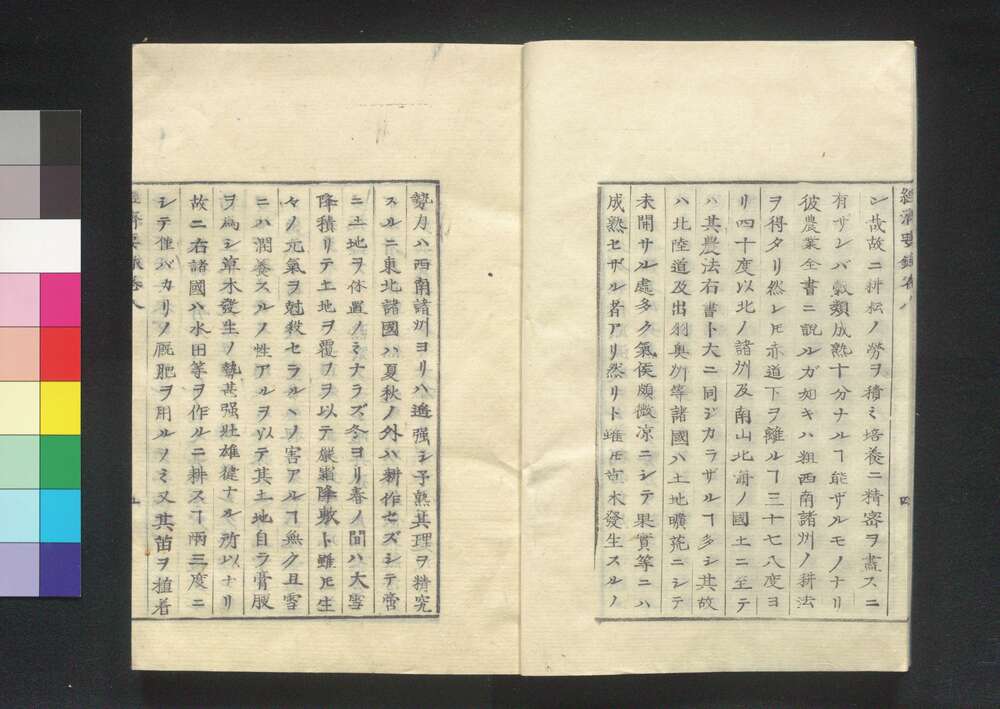 經濟要錄卷八
ン哉故ニ耕耘ノ勞ヲ積ミ培養ニ精密ヲ盡スニ
有ザレバ穀類成熟十分ナルヿ能ザルモノナリ
彼農業全書ニ説ルガ如キハ粗西南諸洲ノ耕法
ヲ得タリ然レ𪜈赤道下ヲ離ルヿ三十七八度ヨ
リ四十度以北ノ諸州及南山北海ノ國土ニ至テ
ハ其農法右書ト大ニ同ジカラザルヿ多シ其故
ハ北陸道及出羽奥州等諸國ハ土地曠荒ニシテ
未開サル處多ク氣候頗微凉ニシテ果實等ニハ
成熟セザル者アリ然リト雖𪜈草木發生スルノ
四
勢力ハ西南諸洲ヨリハ逈强シ予熟其理ヲ精究
スルニ東北諸國ハ夏秋ノ外ハ耕作セズシテ啻
ニ土地ヲ休置ノミナラズ冬ヨリ春ノ間ハ大雪
降積リテ土地ヲ覆フヲ以テ嚴霜降敷ト雖𪜈生
々ノ元氣ヲ尅殺セラルヽノ害アルヿ無ク且雪
ニハ潤養スルノ性アルヲ以テ其土地自ラ膏腴
ヲ為シ草木發生ノ勢甚强壯雄健ナル所以ナリ
故ニ右諸國ハ水田等ヲ作ルニ耕スヿ兩三度ニ
シテ僅バカリノ厩肥ヲ用ルノミ又其苗ヲ植者
經濟要錄卷八